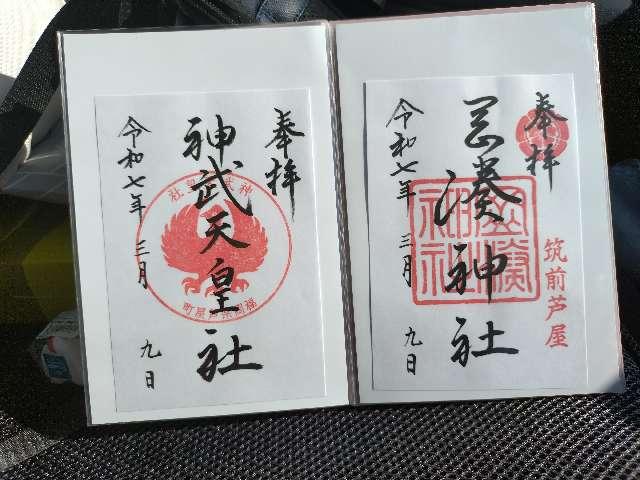 奉拝
岡湊神社
筑前芦屋
令和七年 三月 九日
岡湊神社
奉拝
神武天皇社
令和七年 三月 九日
神武天皇社
福岡県芦屋町